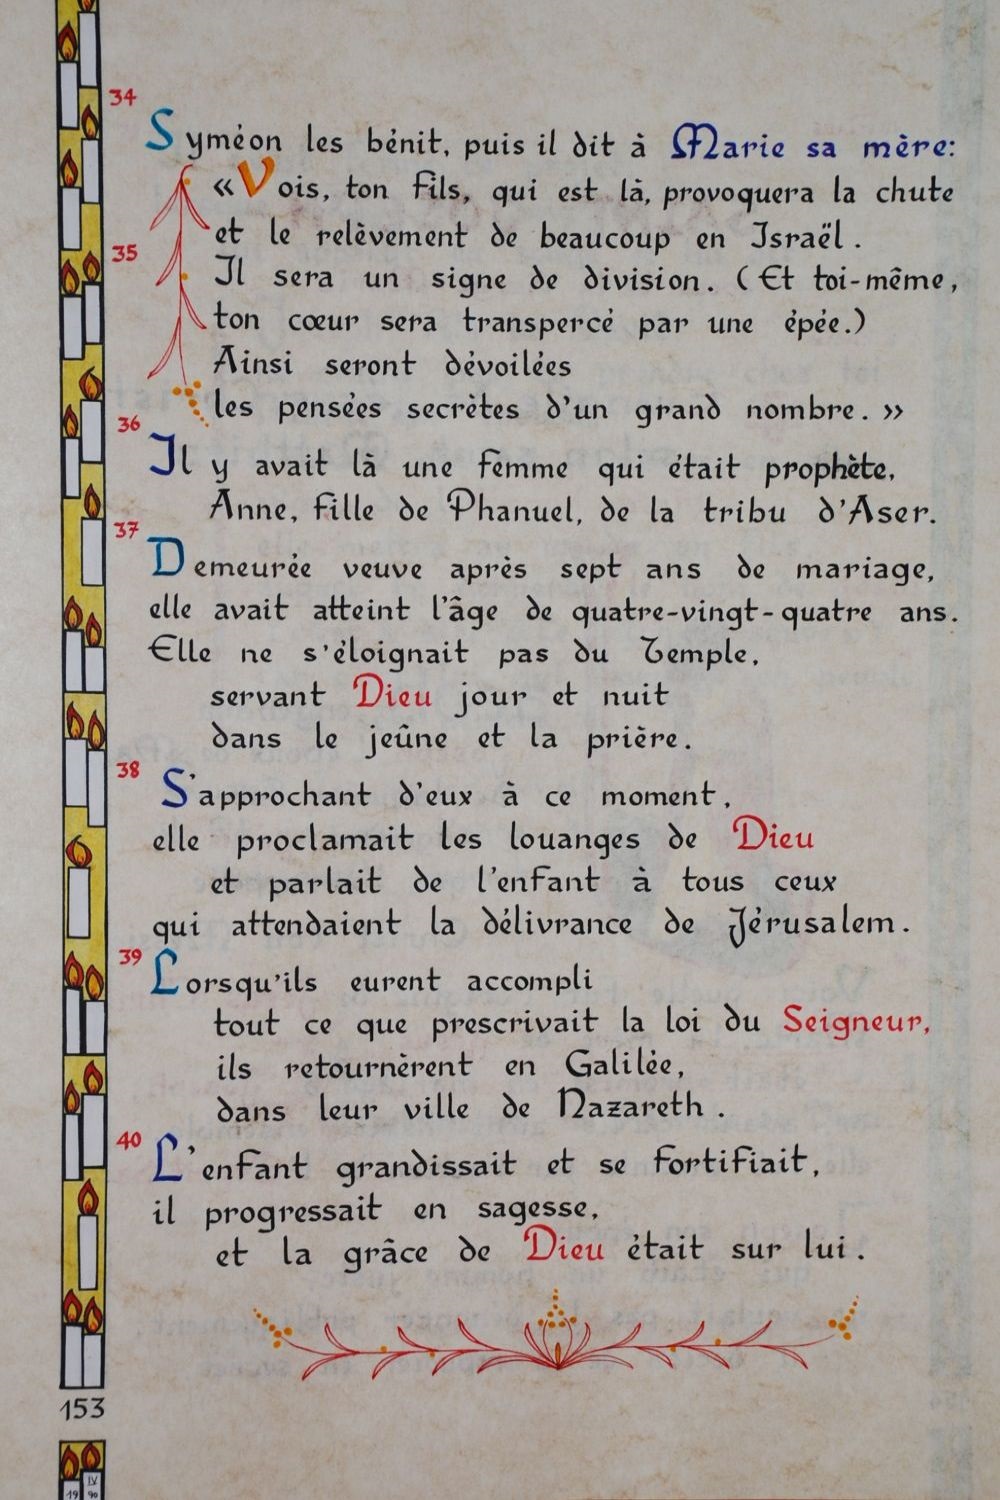 34
Syméon les bénit, puis il dit à Marie sa mère:
«Vois, ton fils, qui est là, provoquera la chute
et le relèvement de beaucoup en Israël.
35
Il sera un signe de division. (Et toi-même,
ton cœur sera transpercé par une épée.)
Ainsi seront dévoilées
les pensées secrètes d'un grand nombre.»
36
Il y avait là une femme qui était prophète,
Anne, fille de Phanuel, de la tribu d'Aser.
37
Demeurée veuve après sept ans de mariage,
elle avait atteint l'âge de quatre-vingt-quatre ans.
Elle ne s'éloignait pas du Temple,
servant Dieu jour et nuit
dans le jeûne et la prière.
38
S'approchant d'eux à ce moment,
elle proclamait les louanges de Dieu
et parlait de l'enfant à tous ceux
qui attendaient la délivrance de Jérusalem.
39
Lorsqu'ils eurent accompli
tout ce que prescrivait la loi du Seigneur,
ils retournèrent en Galilée,
dans leur ville de Nazareth.
40
L'enfant grandissait et se fortifiait,
il progressait en sagesse,
et la grâce de Dieu était sur lui.
153
IV
19 90